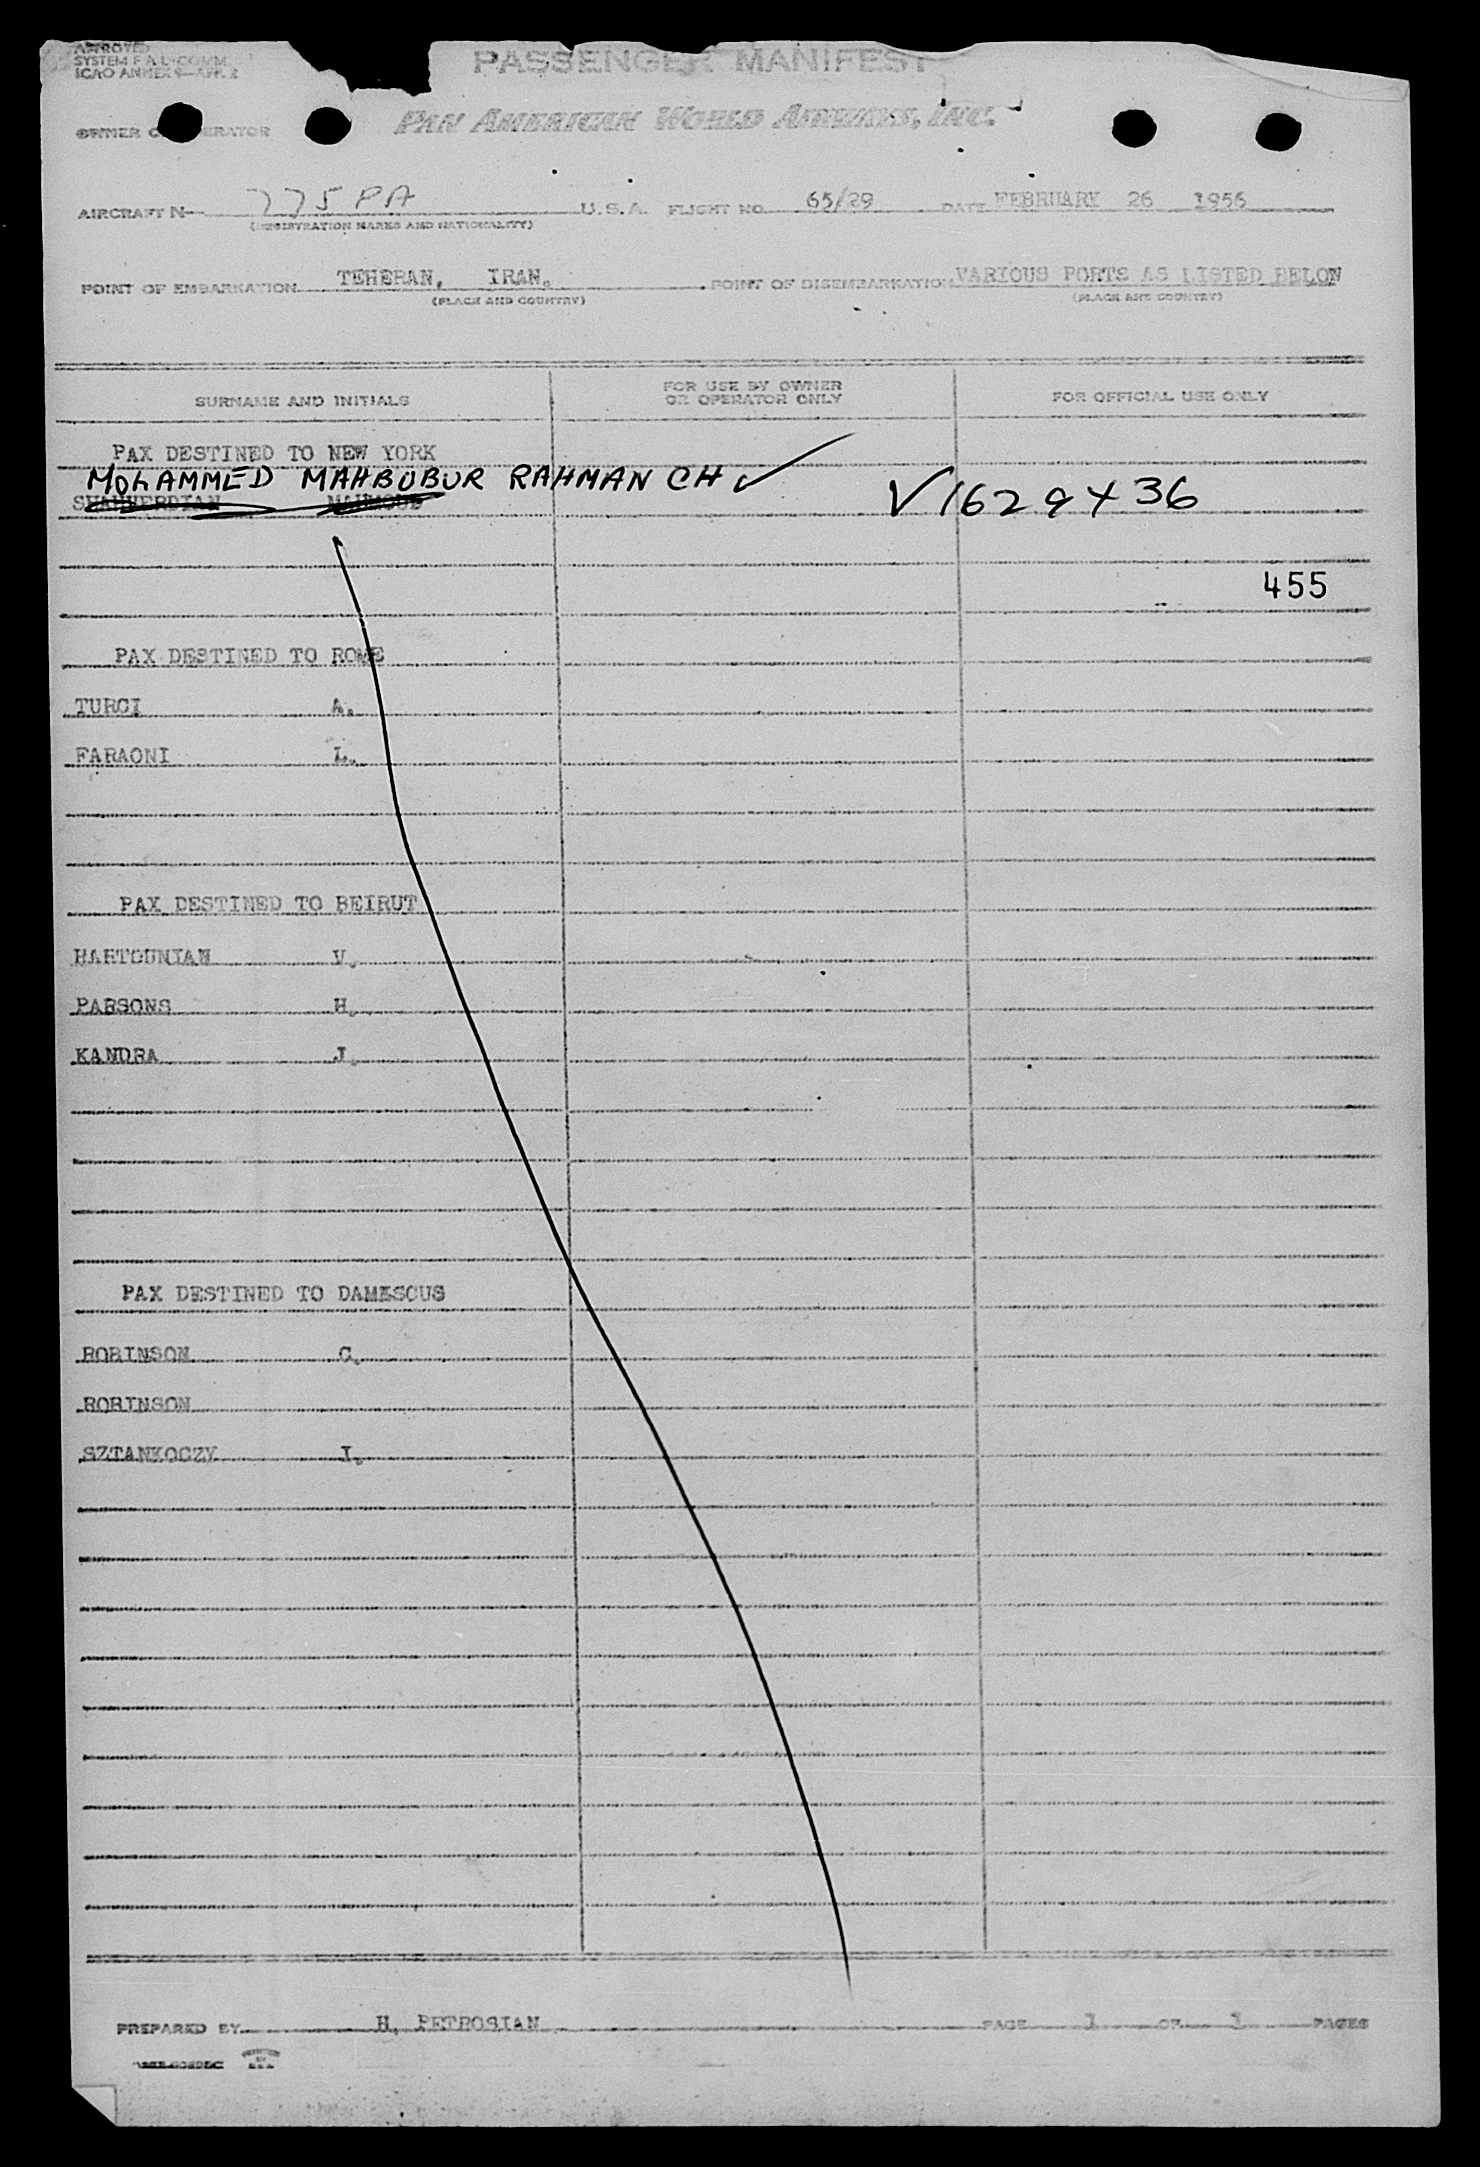 APPROVED
SYSTEM F A L-COMM.
ICAO ANNEX 9-APP. 2
PASSENGER MANIFEST
OWNER O ERATOR
PAN AMERICAN WORLD AIRWAYS, INC.
AIRCRAFT N- 775PA U.S.A. FLIGHT NO. 65/29 DATE FEBRUARY 26 1956
(REGISTRATION MARKS AND NATIONALITY)
POINT OF EMBARKATION TEHERAN, IRAN. POINT OF DISEMBARKATION VARIOUS PORTS AS LISTED BELOW
(PLACE AND COUNTRY) (PLACE AND COUNTRY)
SURNAME AND INITIALS FOR USE BY OWNER OR OPERATOR ONLY FOR OFFICIAL USE ONLY
PAX DESTINED TO NEW YORK
MOHAMMED MAHBUBUR RAHMAN CH ✓
MAHMOUD V1629436
455
PAX DESTINED TO ROME
TURCI A.
FARAONI L.
PAX DESTINED TO BEIRUT
HARTOUNIAN V.
PARSONS H.
KANDRA J.
PAX DESTINED TO DAMESCUS
ROBINSON C.
ROBINSON
SZTANKOCZY I.
PREPARED BY H. PETROSIAN PAGE 1 OF 1 PAGES